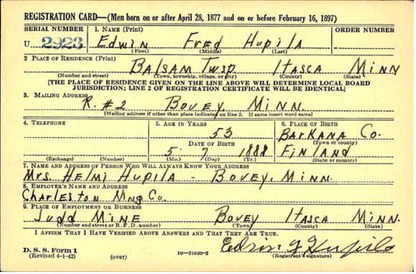 REGISTRATION CARD—(Men born on or after April 28, 1877 and on or before February 16, 1897)
SERIAL NUMBER 1. NAME (Print) ORDER NUMBER
U 2923 Edwin Fred Hupila
(First) (Middle) (Last)
2. PLACE OF RESIDENCE (Print)
Balsam Twsp. Itasca Minn
(Number and street) (Town, township, village, or city) (County) (State)
[THE PLACE OF RESIDENCE GIVEN ON THE LINE ABOVE WILL DETERMINE LOCAL BOARD
JURISDICTION; LINE 2 OF REGISTRATION CERTIFICATE WILL BE IDENTICAL]
3. MAILING ADDRESS
R. #2 Bovey, Minn.
[Mailing address if other than place indicated on line 2. If same insert word same]
4. TELEPHONE 5. AGE IN YEARS 6. PLACE OF BIRTH
53 Barkana Co.
DATE OF BIRTH (Town or county)
5-7 1888 Finland
(Exchange) (Number) (Mo.) (Day) (Yr.) (State or country)
7. NAME AND ADDRESS OF PERSON WHO WILL ALWAYS KNOW YOUR ADDRESS
Mrs. Helmi Hupila - Bovey, Minn.
8. EMPLOYER'S NAME AND ADDRESS
Charleston Mng Co.
9. PLACE OF EMPLOYMENT OR BUSINESS
Judd Mine Bovey Itasca Minn.
(Number and street or R. F. D. number) (Town) (County) (State)
I AFFIRM THAT I HAVE VERIFIED ABOVE ANSWERS AND THAT THEY ARE TRUE.
D. S. S. Form 1 Edwin F Hupila
(Revised 4-1-42) (over) 16—21630-2 (Registrant's signature)